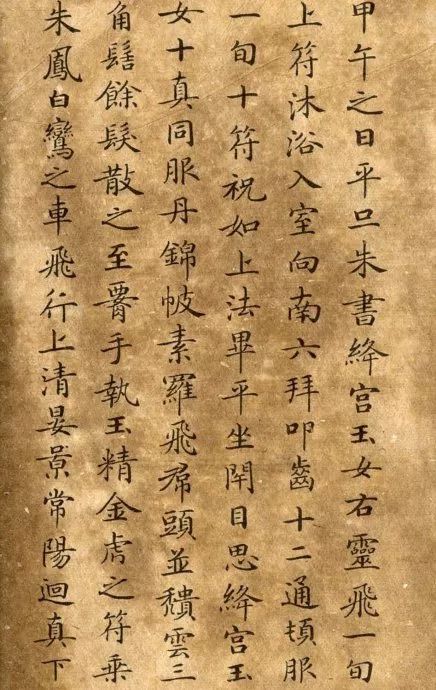 甲午之日平旦朱書絳宮玉女右靈飛一旬
上符沐浴入室向南六拜叩齒十二通頓服
一旬十符祝如上法畢平坐閇目思絳宮玉
女十真同服丹錦帔素羅飛帬頭並穨雲三
角髻餘髮散之至䚈手執玉精金虎之符乗
朱鳳白鸞之車飛行上清晏景常陽迴真下